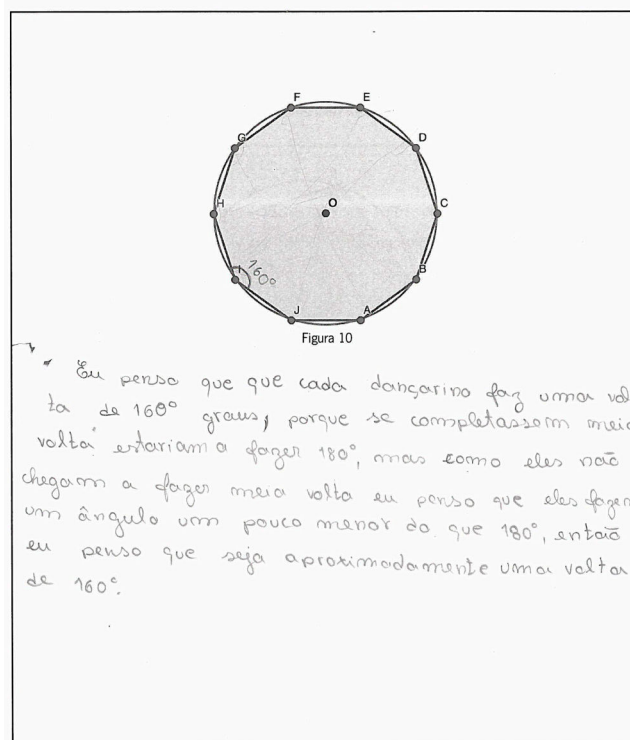 F E
G D
H O C
160°
I B
J A
Figura 10
Eu penso que que cada dançarino faz uma vol
ta de 160° graus, porque se completassem meia
volta estariam a fazer 180°, mas como eles não
chegam a fazer meia volta eu penso que eles fazem
um ângulo um pouco menor do que 180°, então
eu penso que seja aproximadamente uma volta
de 160°.